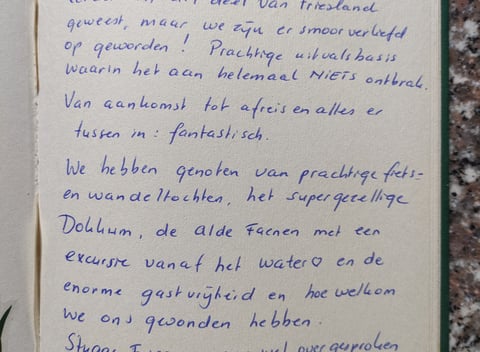 deel van Friesland
geweest, maar we zijn er smoorverliefd
op geworden! Prachtige uitvalsbasis
waarin het aan helemaal NIETS ontbrak.
Van aankomst tot afreis en alles er
tussen in: fantastisch.
We hebben genoten van prachtige fiets-
en wandeltochten, het supergezellige
Dokkum, de Alde Faenen met een
excursie vanaf het water♡ en de
enorme gastvrijheid en hoe welkom
we ons gevonden hebben.
wel over gesproken